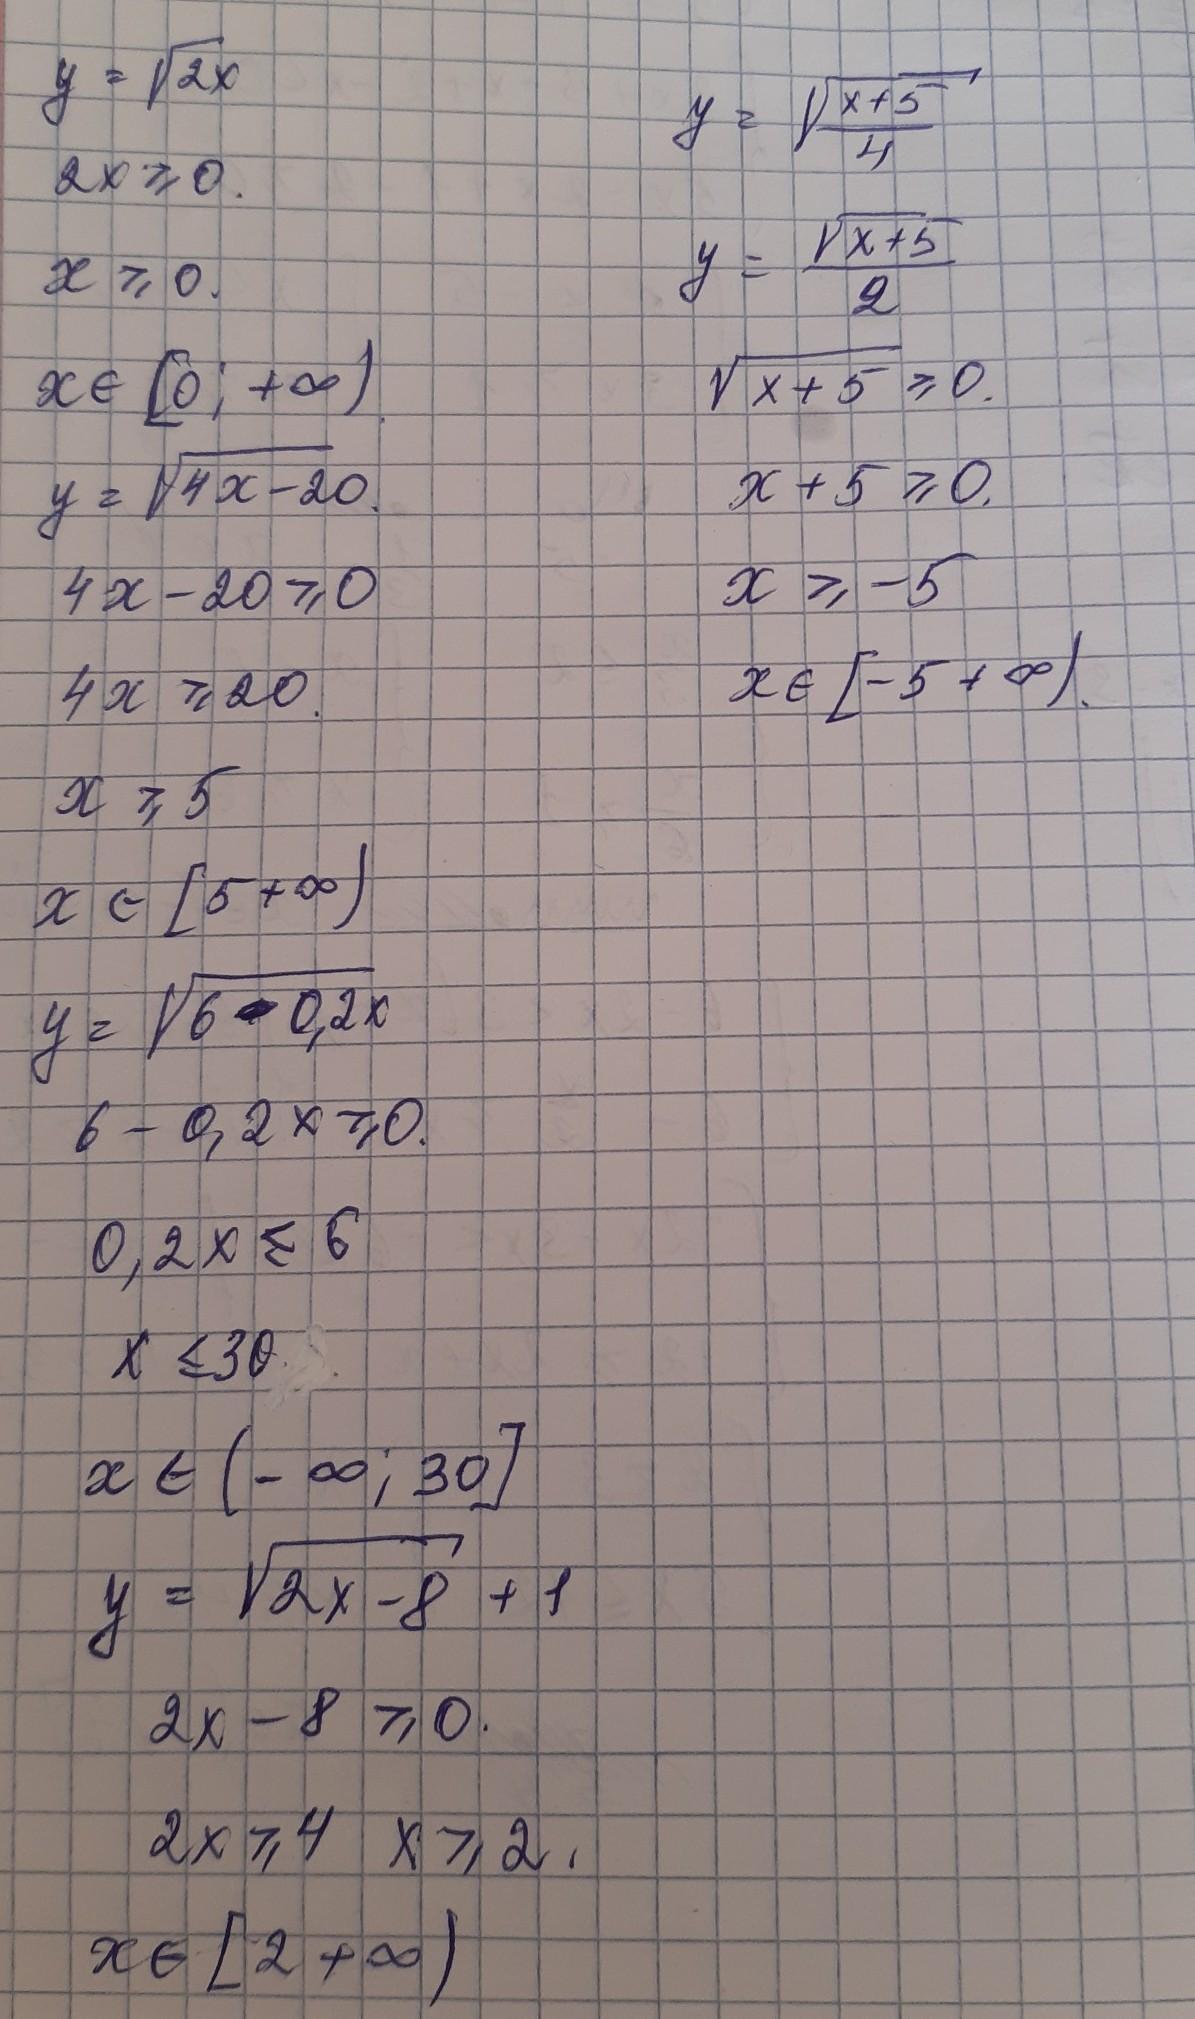 y = √2x
2x ≥ 0.
x ≥ 0.
x ∈ [0; +∞).
y = √4x-20.
4x - 20 ≥ 0
4x ≥ 20.
x ≥ 5
x ∈ [5 +∞)
y = √6 - 0,2x
6 - 0,2x ≥ 0.
0,2x ≤ 6
x ≤ 30.
x ∈ (-∞; 30]
y = √2x-8 + 1
2x - 8 ≥ 0.
2x ≥ 4 x ≥ 2.
x ∈ [2 +∞)
y = √(x+5)/4
y = √x+5 / 2
√x+5 ≥ 0.
x + 5 ≥ 0.
x ≥ -5
x ∈ [-5 +∞).